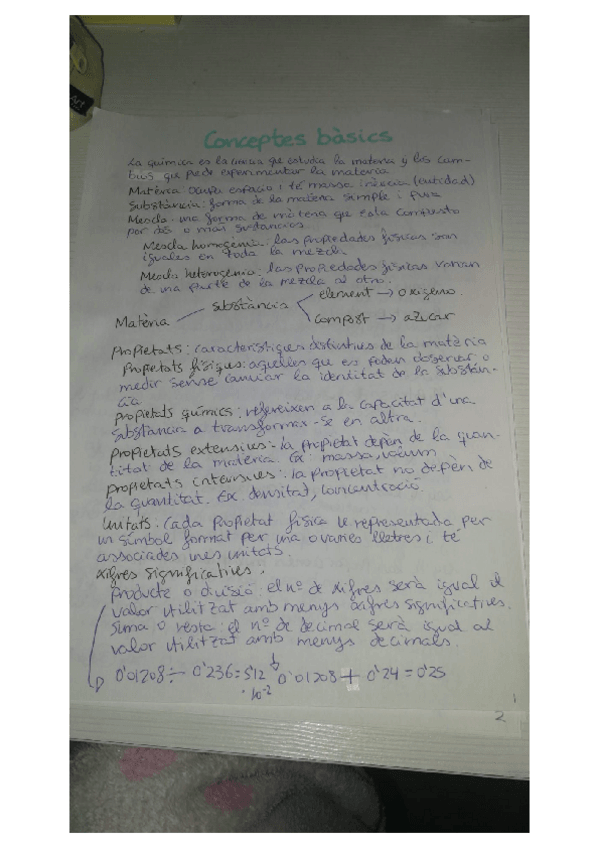 Conceptes bàsics
La química es la ciencia que estudia la materia y los cam-
bios que puede experimentar la materia
Matèria: Ocupa espacio i té massa inèrcia (cantidad)
Substància: forma de la materia simple i pura
Mescla: una forma de materia que esta compuesto
por dos o mas sustancias
Mescla homogènia: las propiedades fisicas son
iguales en toda la mezcla.
Mescla heterogènia: las propiedades fisicas varian
de una parte de la mezcla al otro.
Matèria substància element → oxigeno.
compost → azucar
Propietats: caracteristiques distintives de la matèria
Propietats físiques: aquelles que es poden observar o
medir sense canviar la identitat de la substàn-
cia
propietats químics: refereixen a la capacitat d'una
substància a transformar-se en altra.
propietats extensives: la propietat depèn de la quan-
titat de la matèria. Ex: massa, volum
propietats intensives: la propietat no depèn de
la quantitat. Ex. densitat, concentració.
Unitats: Cada propietat física ve representada per
un símbol format per una o varies lletres i té
associades unes unitats.
Xifres significatives.
Producte o divisió: el nº de xifres serà igual al
valor utilitzat amb menys xifres significatives.
Suma o resta: el nº de decimal serà igual al
valor utilitzat amb menys decimals.
0'01208 ÷ 0'236 = 5'12 · 10⁻² 0'01208 + 0'24 = 0'25
2